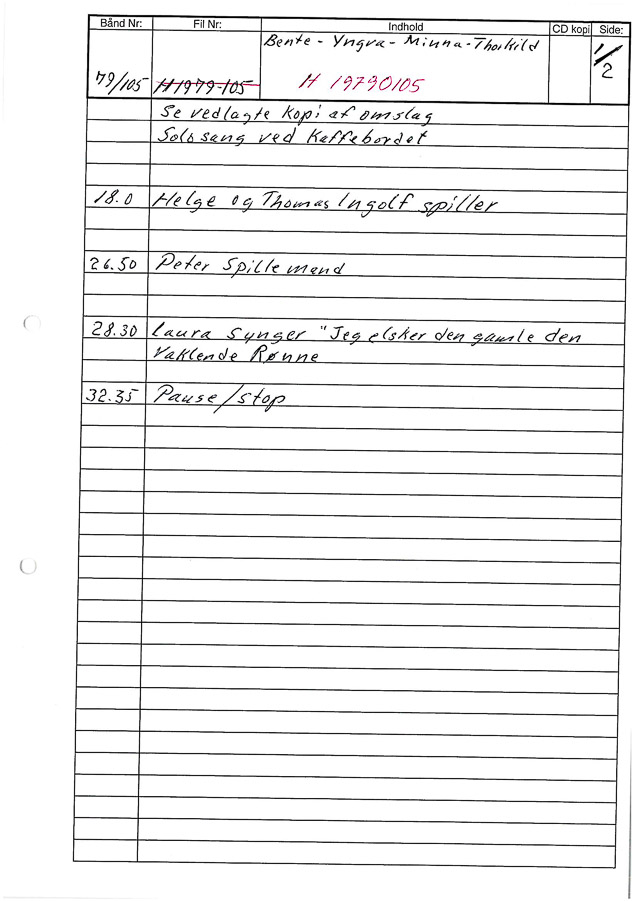 Bånd Nr: Fil Nr: Indhold CD kopi Side:
Bente - Yngva - Minna - Thorkild
79/105 H1979-105 H 19790105 1/2
Se vedlagte kopi af omslag
Solosang ved Kaffebordet
18.0 Helge og Thomas Ingolf spiller
26.50 Peter Spillemand
28.30 Laura synger "Jeg elsker den gamle den
Vaklende Rønne
32.35 Pause/stop